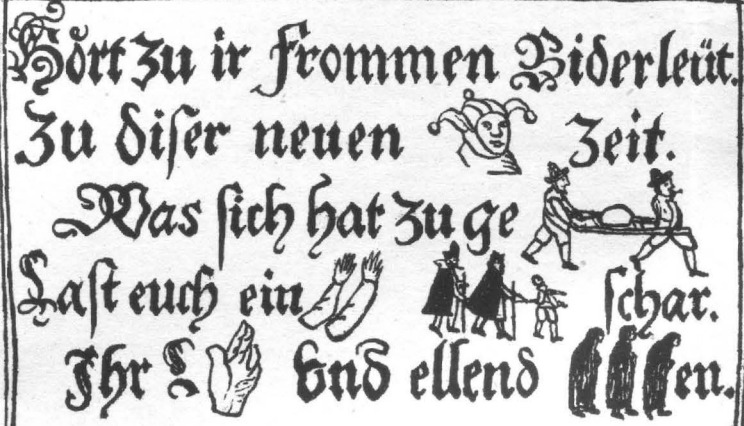 Hört zu ir frommen Biderleüt.
Zu diſer neuen Zeit.
Was ſich hat zu ge
Laſt euch ein ſchar.
Ihr L Vnd ellend en.